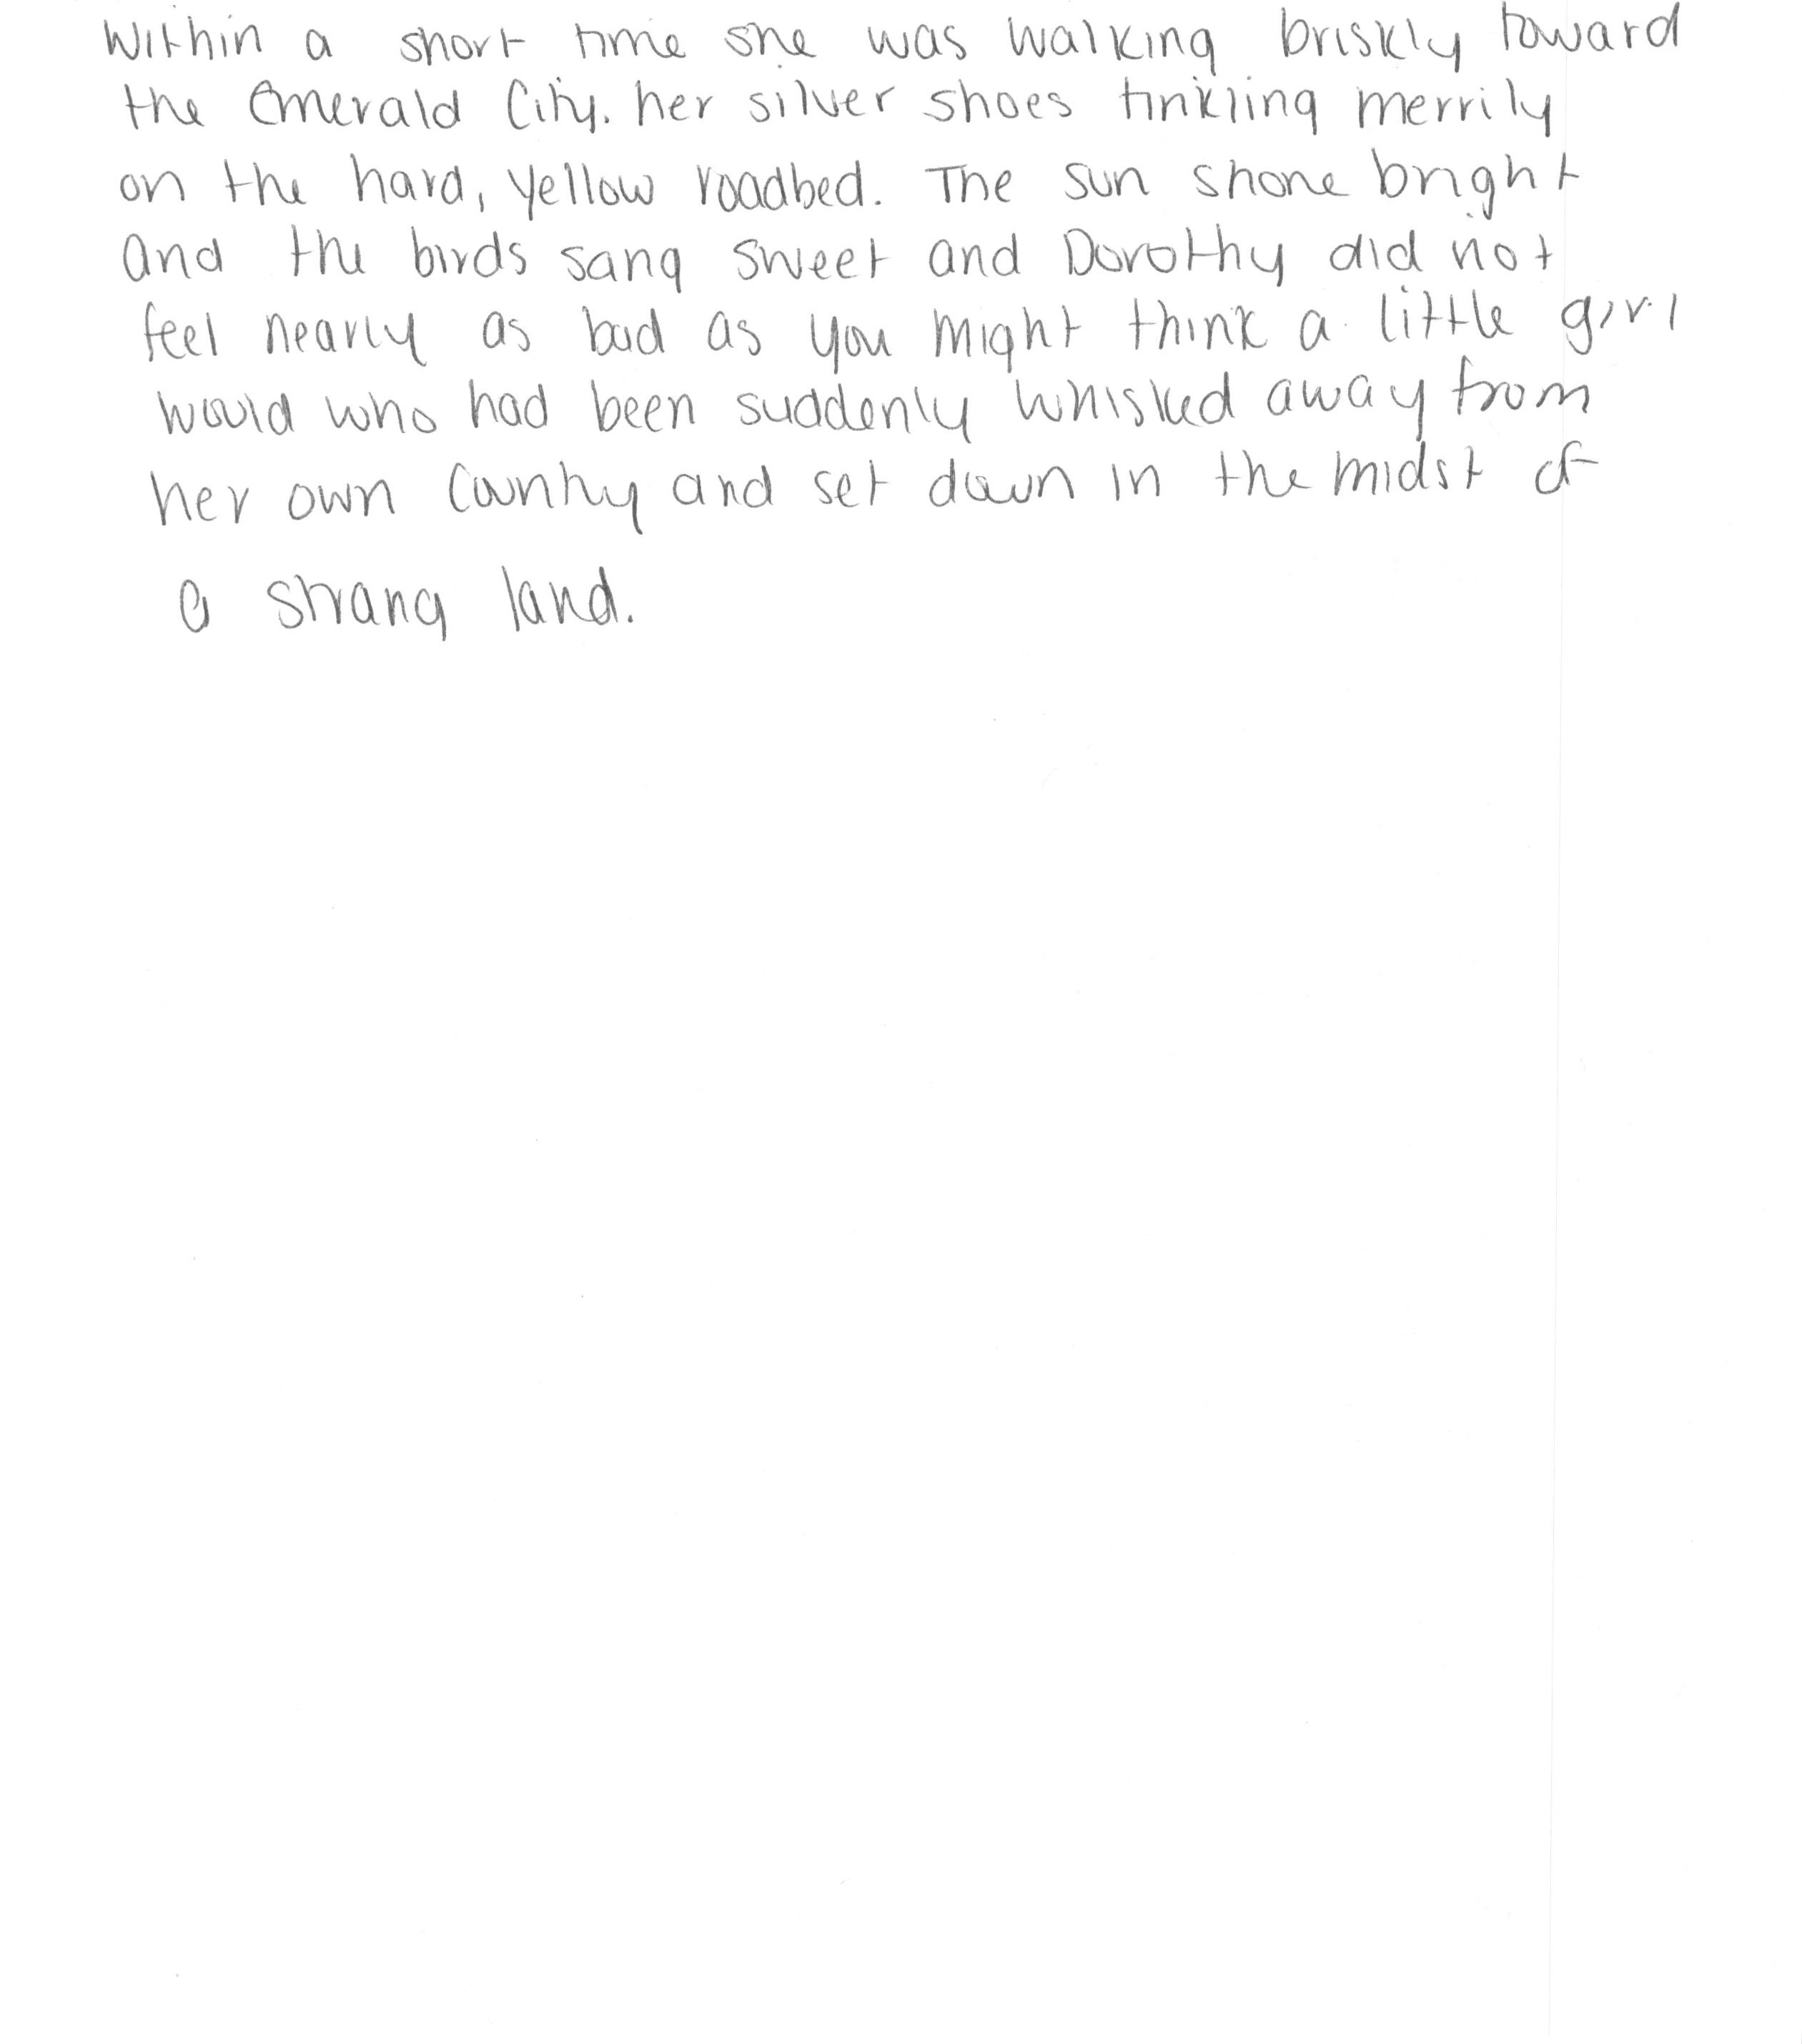 Within a short time she was walking briskly toward
the Emerald City. her silver shoes tinkling merrily
on the hard, yellow roadbed. The sun shone bright
and the birds sang sweet and Dorothy did not
feel nearly as bad as you might think a little girl
would who had been suddenly whisked away from
her own country and set down in the midst of
a strang land.